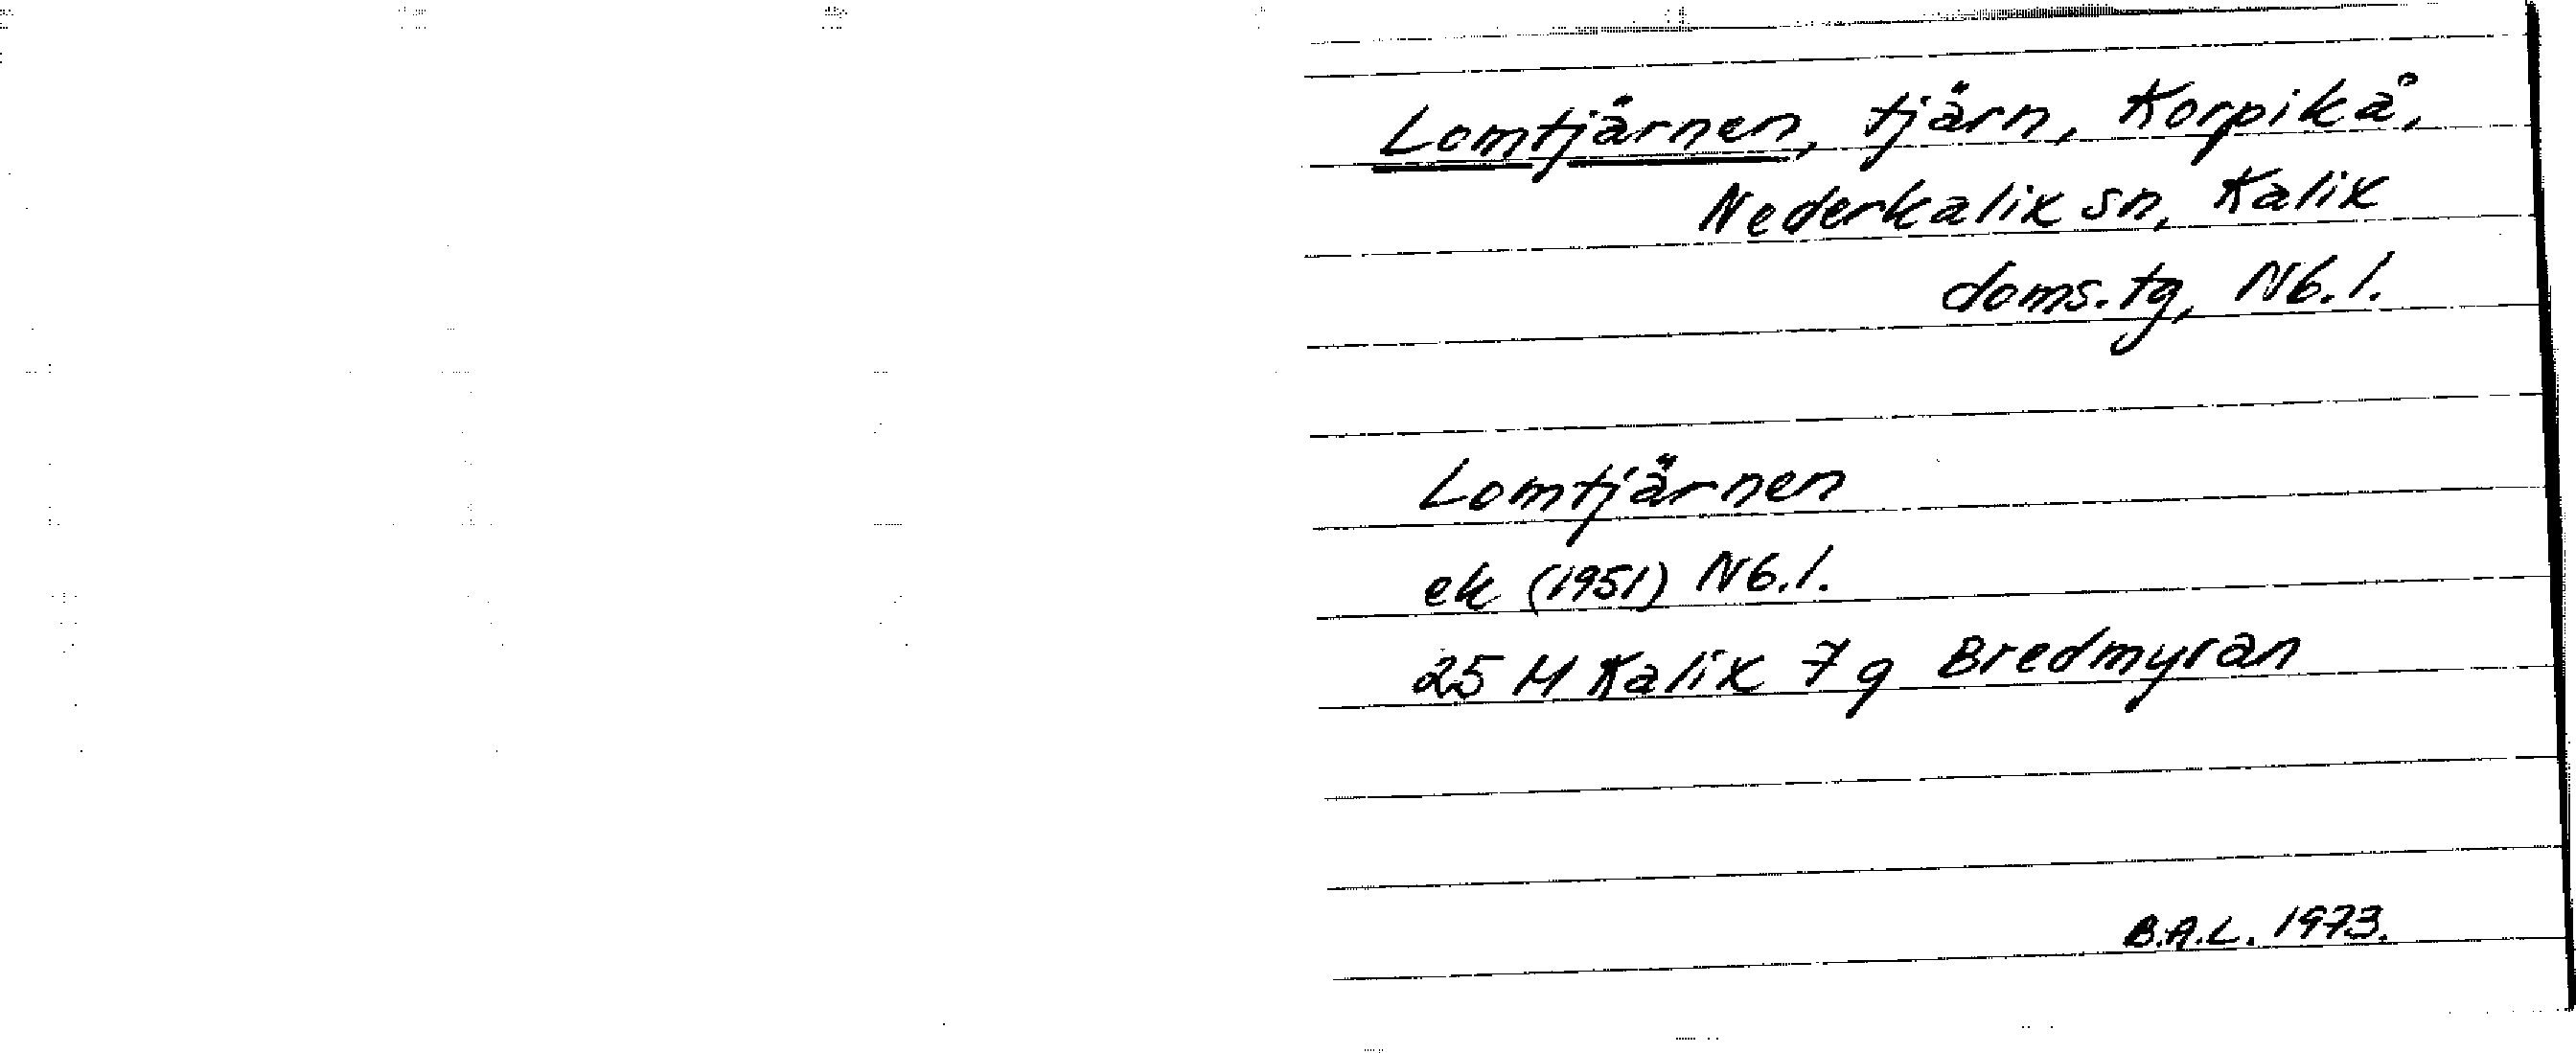 Lomtjärnen, tjärn, Korpikå,
Nederkalix sn, Kalix
doms.tg, Nb.l.
Lomtjärnen
ek (1951) Nb.l.
25 M Kalix 7 g Bredmyran
B.A.L. 1973.